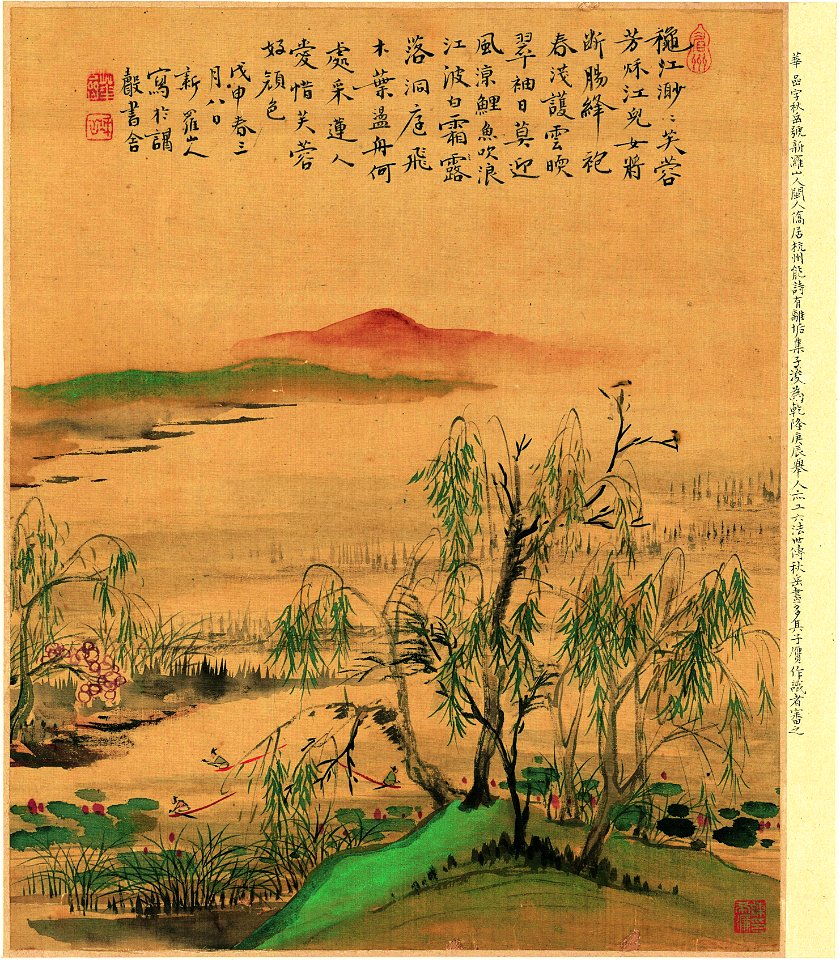 穐江渺〻芙蓉
芳秌江兒女將
断腸絳袍
春淺護雲暎
翠袖日莫迎
風涼鯉魚吹浪
江波白霜露
落洞庭飛
木葉盪舟何
處采蓮人
愛惜芙蓉
好顔色
戊申春三
月八日
新羅山人
寫於講
聲書舍
華嵒字秋岳號新羅山人閩人僑居杭州能詩有離垢集子浚為乾隆庚辰舉人亦工六法世傳秋岳畫多其子贋作識者審之